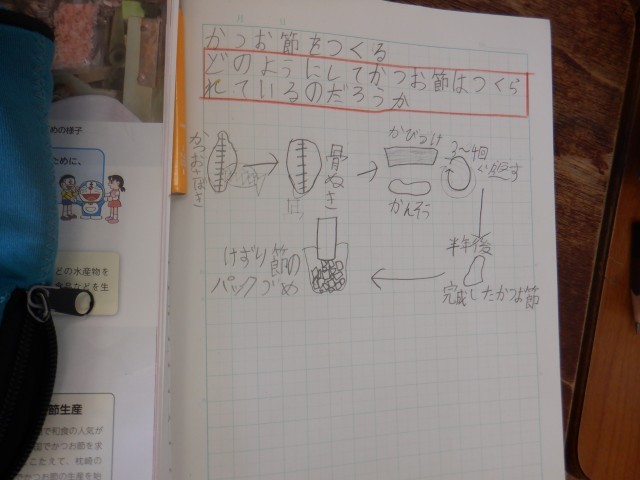 かつお節をつくる
どのようにしてかつお節はつくら
れているのだろうか
かつお
骨ぬき
かびつけ
かんそう
2〜4回
くり返す
半年後
完成したかつお節
けずり節の
パックづめ
めの様子
ために、
どの水産物を
食品などを生
節生産
で和食の人気が
でかつお節を求
こたえて、枕崎の
でかつお節の生産を始